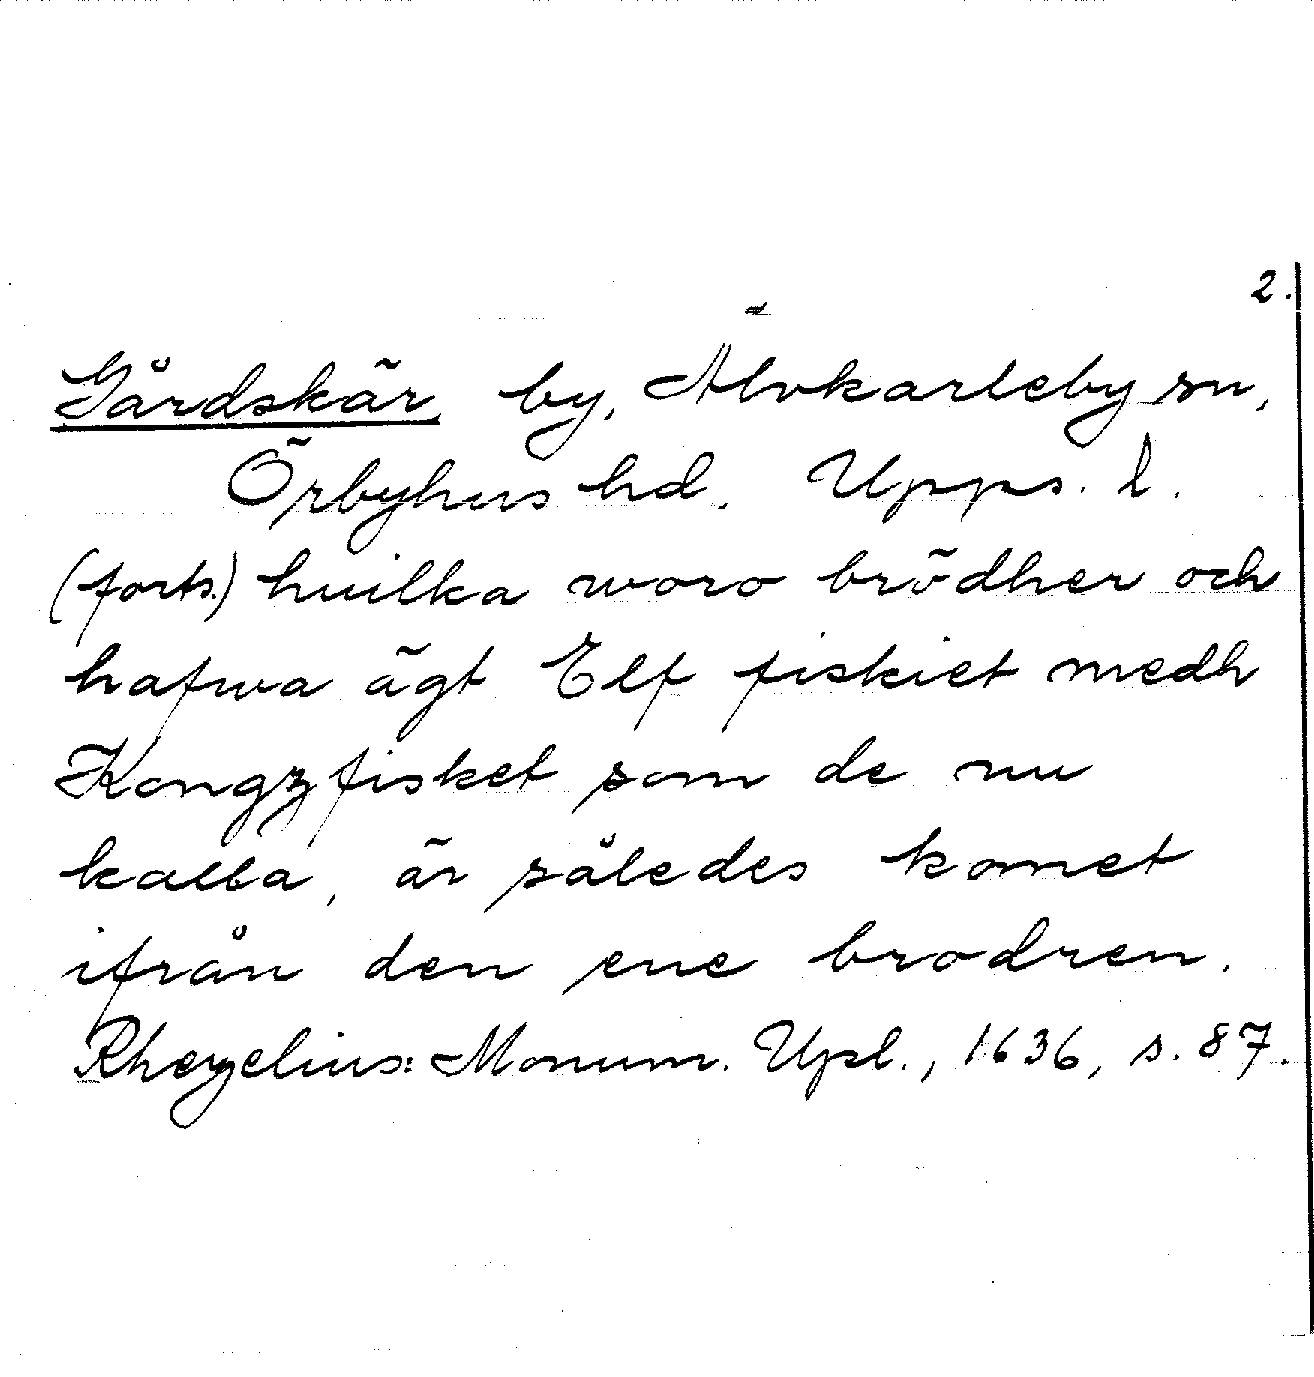 2.
Gårdskär by, Älvkarleby sn,
Örbyhus hd. Upps. l.
(forts.) huilka woro brödher och
hafwa ägt Elf fiskiet medh
Kongzfisket som de nu
kalla, är således komet
ifrån den ene brodren.
Rhezelius: Monum. Upl., 1636, s. 87.